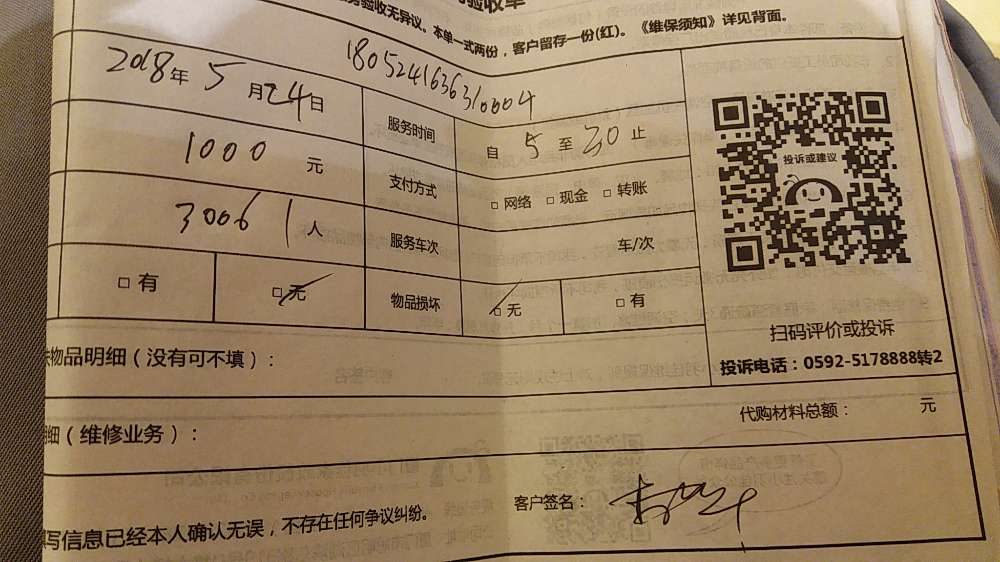 验收单
务验收无异议。本单一式两份，客户留存一份(红)。《维保须知》详见背面。
1805241636310004
2018年 5月24日 服务时间 自 5 至 30 止
1000 元 支付方式 □ 网络 □ 现金 □ 转账
30061 人 服务车次 车/次
□ 有 □ 无 物品损坏 □ 无 □ 有
投诉或建议
扫码评价或投诉
投诉电话：0592-5178888转2
失物品明细（没有可不填）：
代购材料总额： 元
细（维修业务）：
客户签名：
写信息已经本人确认无误，不存在任何争议纠纷。